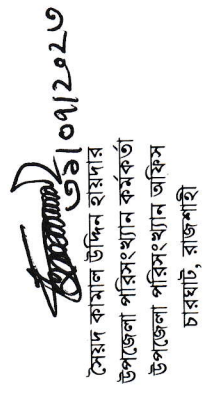 ৩১/০৭/২০২৩
সৈয়দ কামাল উদ্দিন হায়দার
উপজেলা পরিসংখ্যান কর্মকর্তা
উপজেলা পরিসংখ্যান অফিস
চারঘাট, রাজশাহী